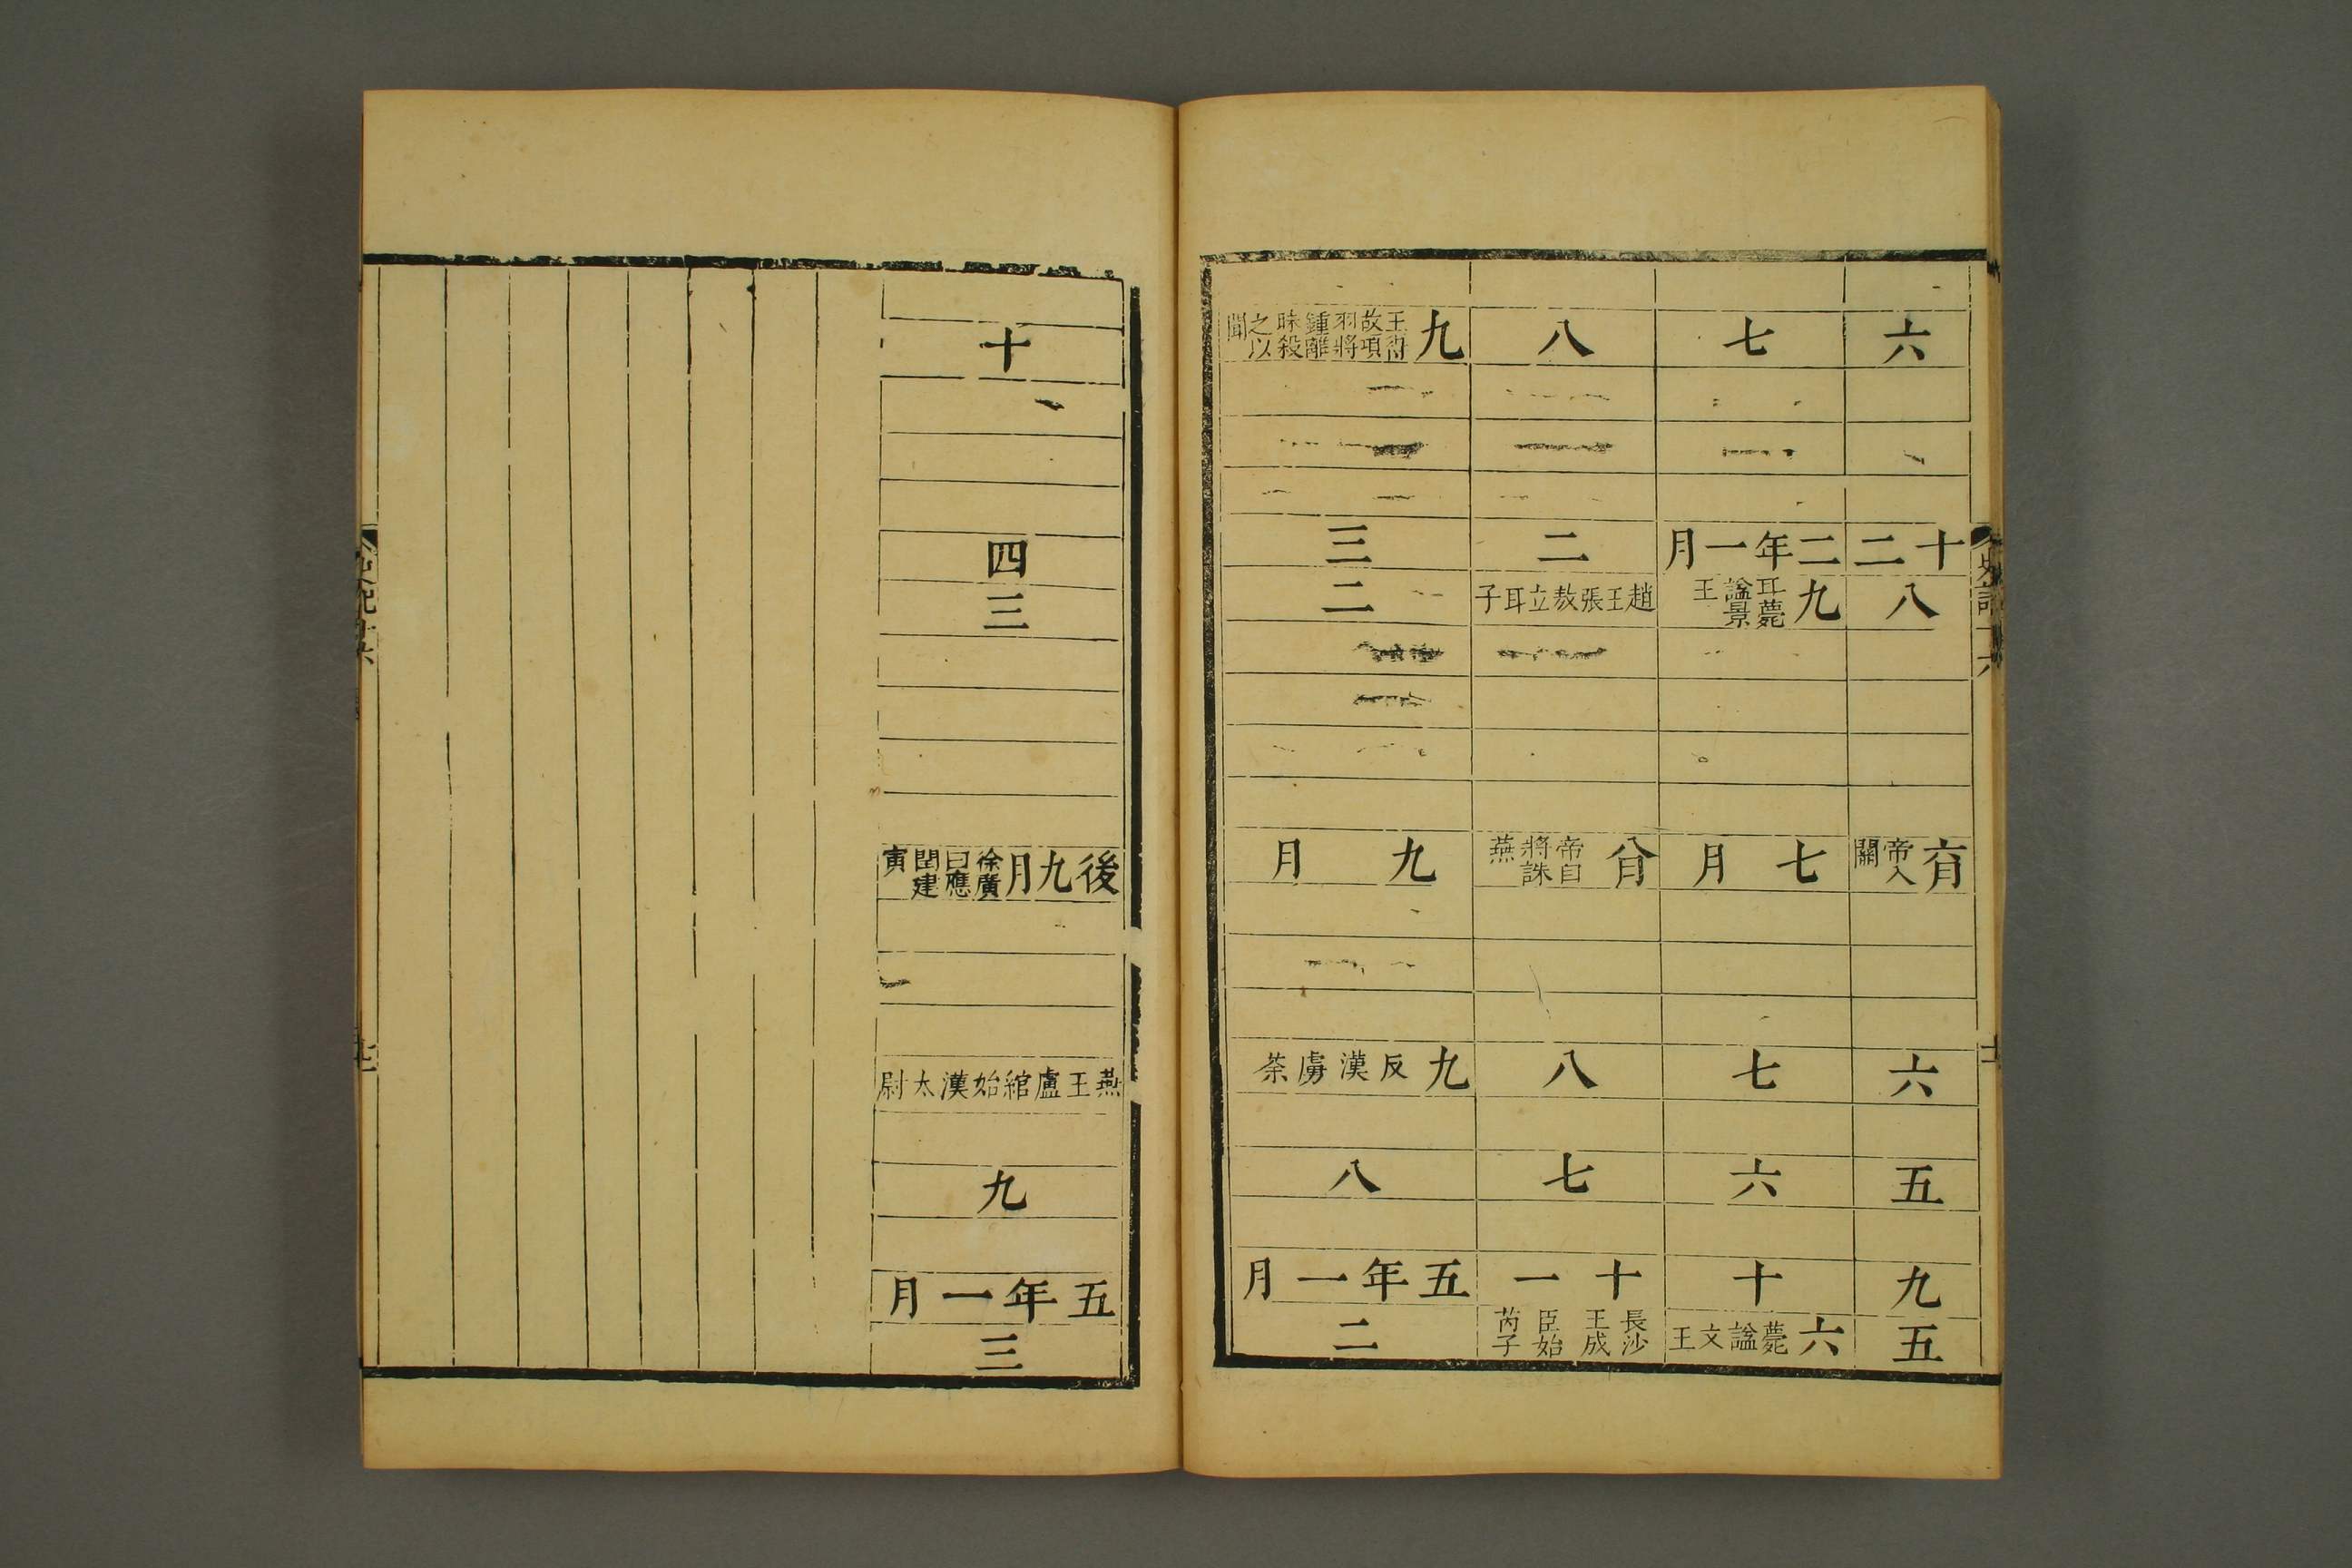 六
十二
八
六月帝入關
六
五
九
五
七
二年一月
九耳薨謚景王
七月
七
六
十
六薨謚文王
八
二
趙王張敖立耳子
八月帝自將誅燕
八
七
十一
長沙王成臣始芮子
九王得故項羽將鍾離眛殺之以聞
三
二
九月
九反漢虜荼
八
五年一月
二
十
四
三
後九月徐廣曰應閏建寅
燕王盧綰始漢太尉
九
五年一月
三